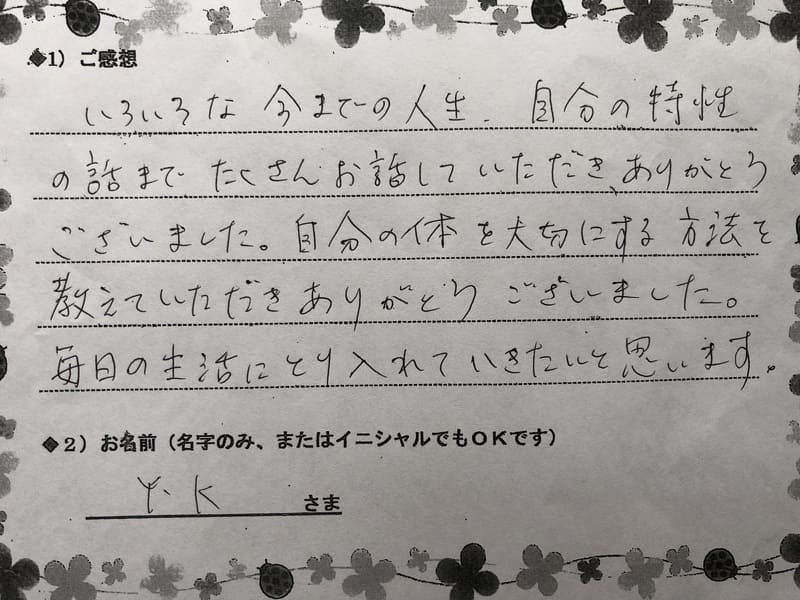 ◆1）ご感想
いろいろな今までの人生、自分の特性
の話まで たくさんお話していただき、ありがとう
ございました。自分の体を大切にする方法を
教えていただきありがとうございました。
毎日の生活にとり入れていきたいと思います。
◆2）お名前（名字のみ、またはイニシャルでもOKです）
Y・K さま